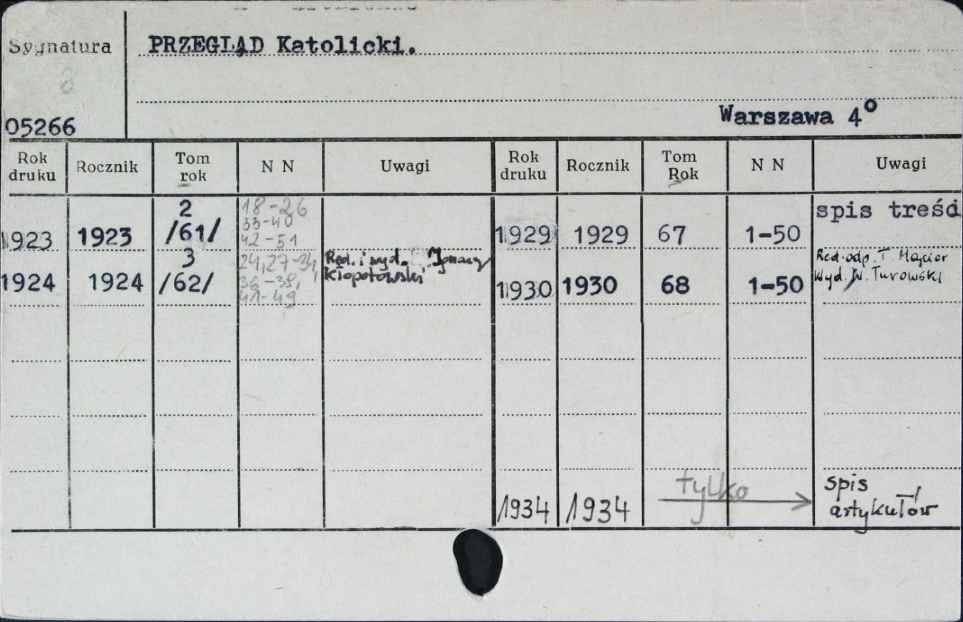 Sygnatura
PRZEGLĄD Katolicki.
05266
Warszawa 4°
Rok druku Rocznik Tom rok N N Uwagi Rok druku Rocznik Tom Rok N N Uwagi
1923 1923 2 /61/ 18-26 33-40 42-51
1924 1924 3 /62/ 24,27-34, 36-38, 41-49 Red. i wyd. Ignacy Kłopotowski
1929 1929 67 1-50 spis treśd
1930 1930 68 1-50 Red. odp. T. Wyd. W. Turowski
1934 1934 tylko spis artykułów